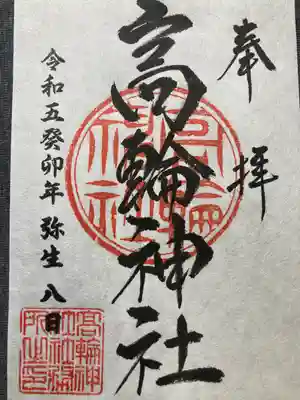 奉拝
高輪神社
令和五癸卯年 弥生 八日
高輪神社社務所之印